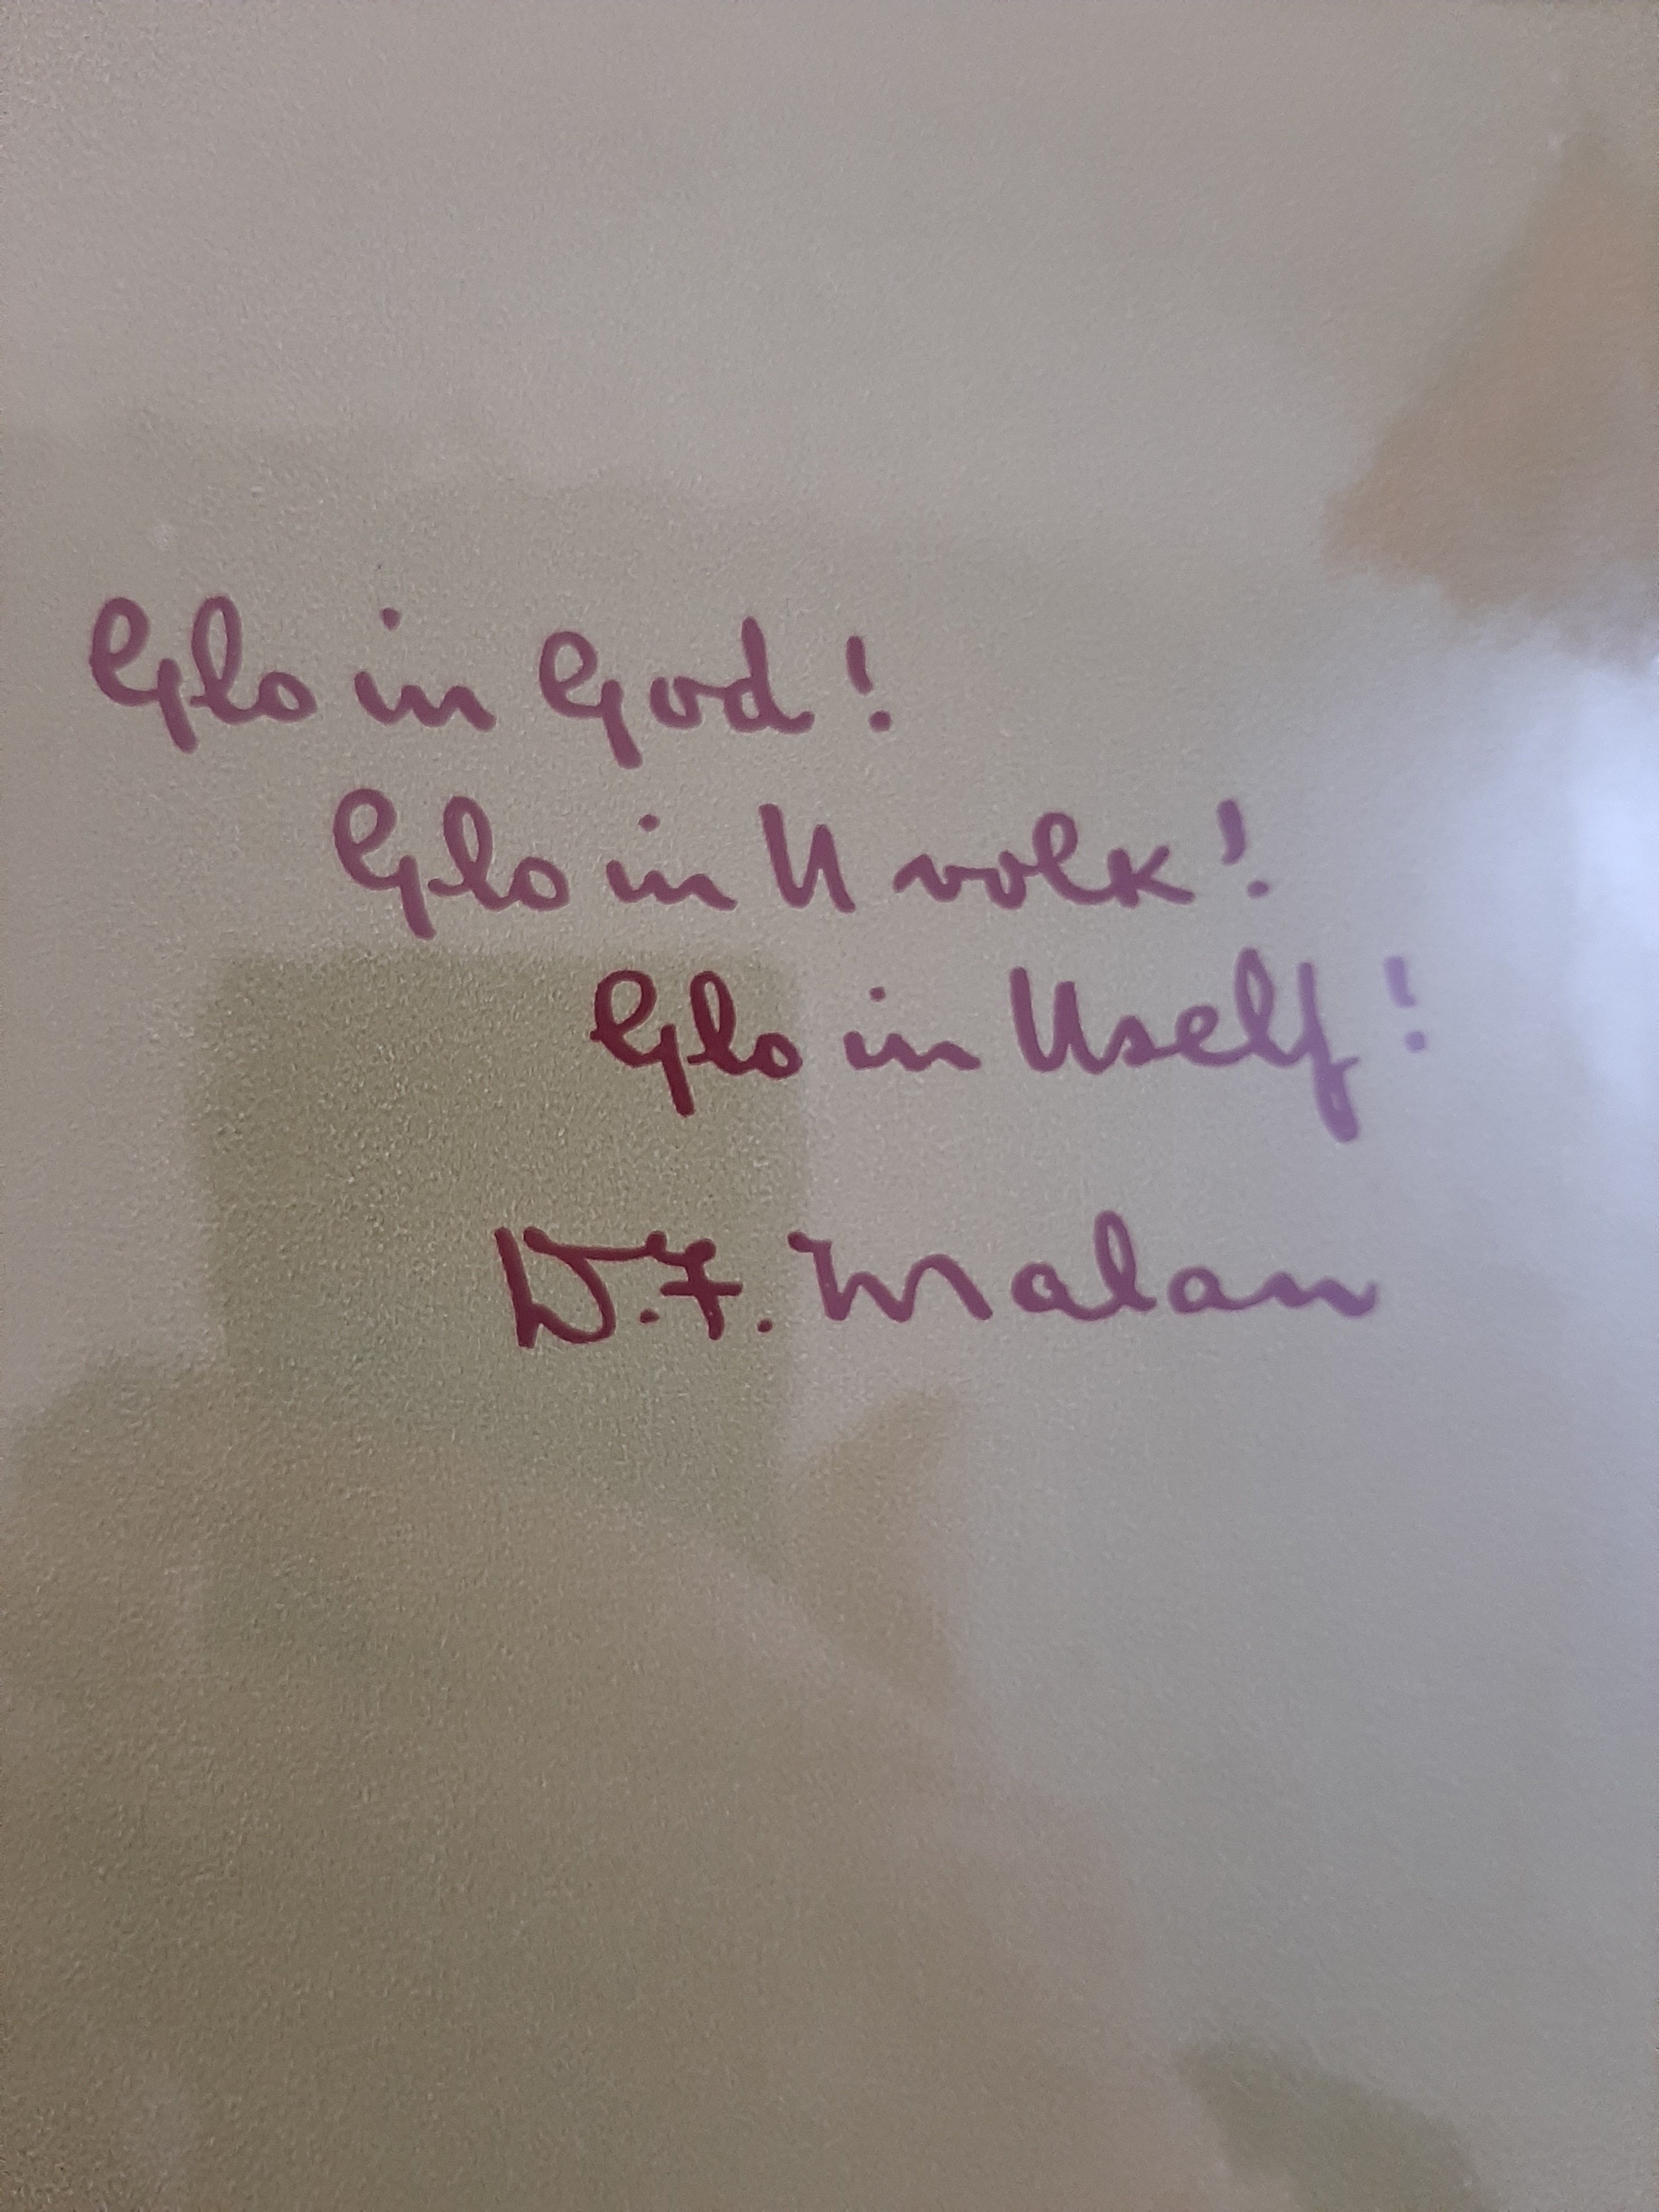 Glo in God!
Glo in U volk!
Glo in Uself!
D.F. Malan